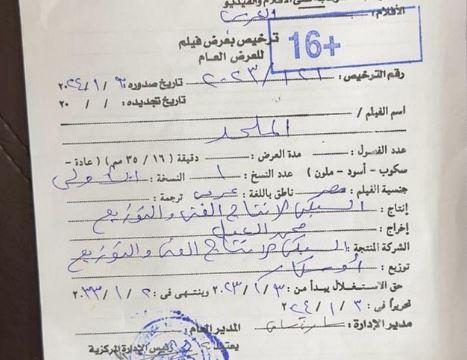 الأفلام: والعربى
16+
ترخيص بعرض فيلم
للعرض العام
رقم الترخيص: ٢٠٢٣/١٢١ تاريخ صدوره ٢٠٢٤/١/٣
تاريخ تجديده: / / ٢٠
اسم الفيلم /
الملحد
عدد الفصول: مدة العرض: دقيقة (١٦ / ٣٥ مم) (عادة -
سكوب - أسود - ملون) عدد النسخ: ١ النسخة: الأولى
جنسية الفيلم: مصر ناطق باللغة: عربى ترجمة:
إنتاج: السبكى لإنتاج الفنى والتوزيع
إخراج: محمد العدل
الشركة المنتجة: السبكى لإنتاج الفنى والتوزيع
توزيع: أوسكار
حق الاستغلال يبدأ من: ٢٠٢٣/١/٣ وينتهى فى: ٢٠٣٣/١/٢
تحريرا فى: ٢٠٢٤/١/٣
مدير الإدارة: المدير العام:
يعتمد رئيس الإدارة المركزية